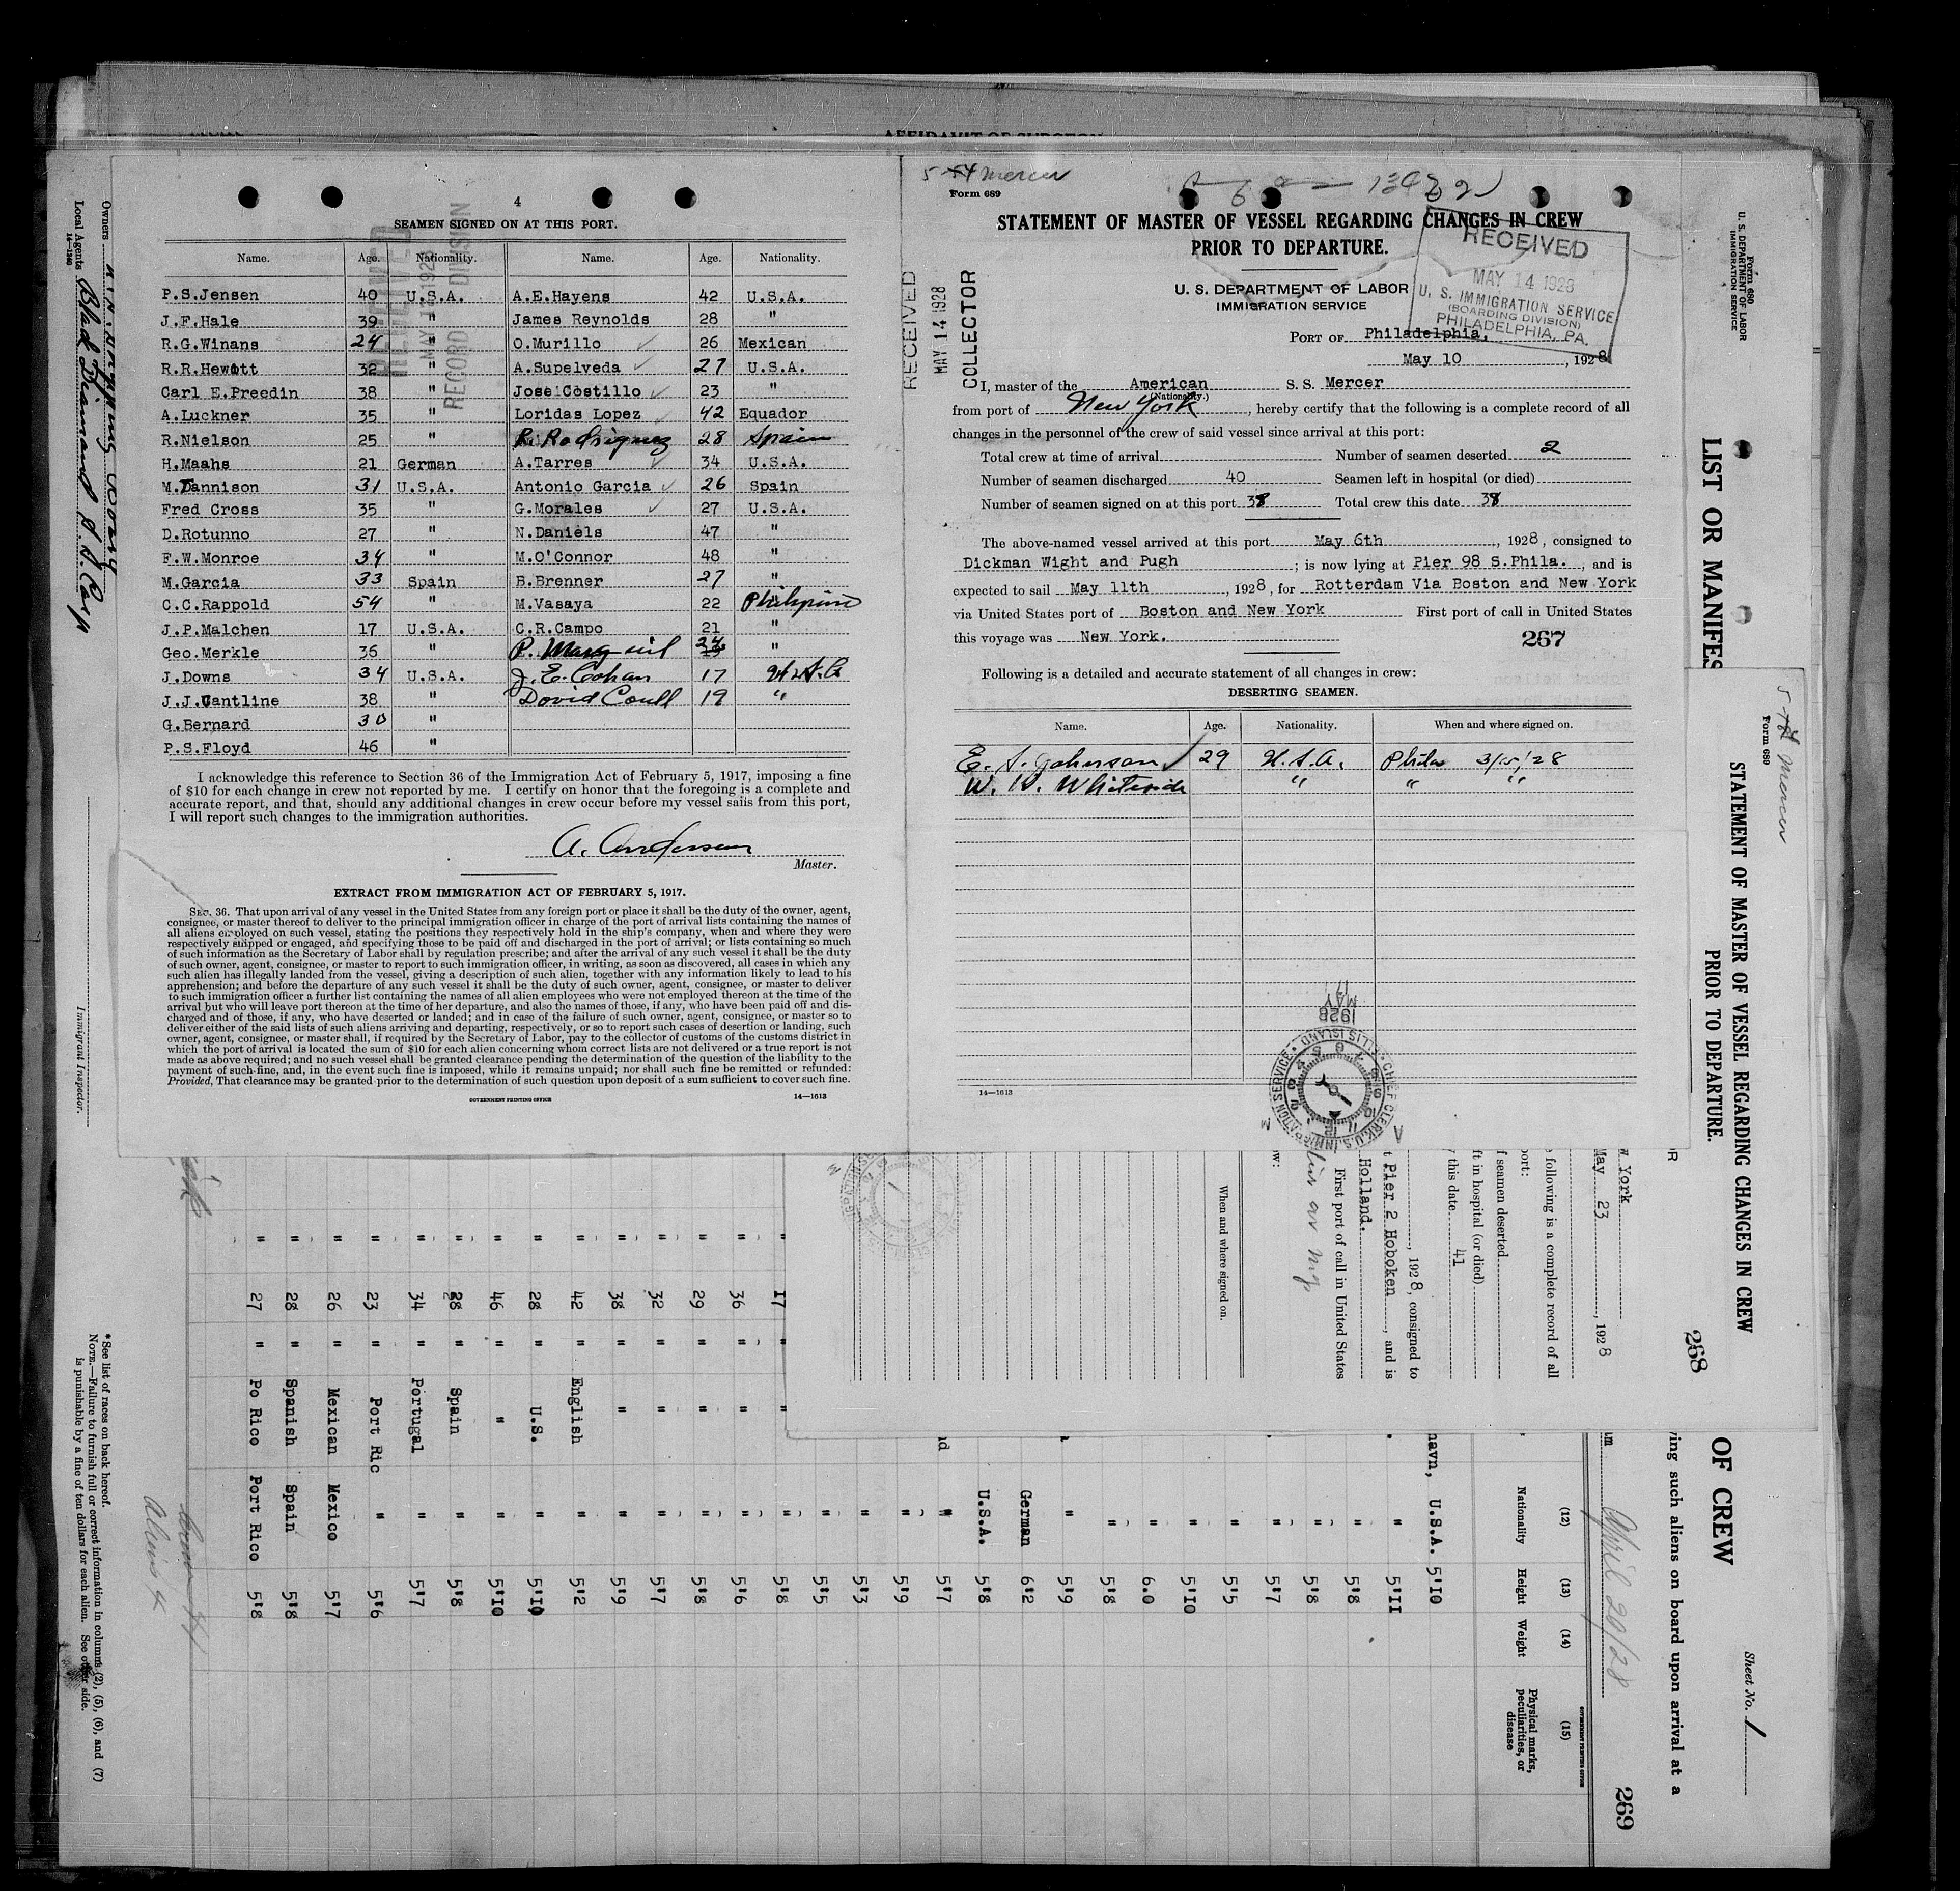 4
SEAMEN SIGNED ON AT THIS PORT.
Name. Age. Nationality. Name. Age. Nationality.
P.S.Jensen 40 U.S.A. A.E.Hayens 42 U.S.A.
J.F.Hale 39 " James Reynolds 28 "
R.G.Winans 24 " O.Murillo 26 Mexican
R.R.Hewitt 32 " A.Supelveda 27 U.S.A.
Carl E.Preedin 38 " Jose Costillo 23 "
A.Luckner 35 " Loridas Lopez 42 Equador
R.Nielson 25 " R. Rodriguez 28 Spain
H.Maahs 21 German A.Tarres 34 U.S.A.
M.Tannison 31 U.S.A. Antonio Garcia 26 Spain
Fred Cross 35 " G.Morales 27 U.S.A.
D.Rotunno 27 " N.Daniels 47 "
F.W.Monroe 34 " M.O'Connor 48 "
M.Garcia 33 Spain B.Brenner 27 "
C.C.Rappold 54 " M.Vasaya 22
J.P.Malchen 17 U.S.A. C.R.Campo 21 "
Geo.Merkle 36 " P. "
J.Downs 34 U.S.A. J. E. Cohan 17 U.S.A.
J.J.Cantline 38 " David Coull 19 "
G.Bernard 30 "
P.S.Floyd 46 "
I acknowledge this reference to Section 36 of the Immigration Act of February 5, 1917, imposing a fine
of $10 for each change in crew not reported by me. I certify on honor that the foregoing is a complete and
accurate report, and that, should any additional changes in crew occur before my vessel sails from this port,
I will report such changes to the immigration authorities.
A. Andersen
Master.
EXTRACT FROM IMMIGRATION ACT OF FEBRUARY 5, 1917.
SEC. 36. That upon arrival of any vessel in the United States from any foreign port or place it shall be the duty of the owner, agent,
consignee, or master thereof to deliver to the principal immigration officer in charge of the port of arrival lists containing the names of
all aliens employed on such vessel, stating the positions they respectively hold in the ship's company, when and where they were
respectively shipped or engaged, and specifying those to be paid off and discharged in the port of arrival; or lists containing so much
of such information as the Secretary of Labor shall by regulation prescribe; and after the arrival of any such vessel it shall be the duty
of such owner, agent, consignee, or master to report to such immigration officer, in writing, as soon as discovered, all cases in which any
such alien has illegally landed from the vessel, giving a description of such alien, together with any information likely to lead to his
apprehension; and before the departure of any such vessel it shall be the duty of such owner, agent, consignee, or master to deliver
to such immigration officer a further list containing the names of all alien employees who were not employed thereon at the time of the
arrival but who will leave port thereon at the time of her departure, and also the names of those, if any, who have been paid off and dis-
charged and of those, if any, who have deserted or landed; and in case of the failure of such owner, agent, consignee, or master so to
deliver either of the said lists of such aliens arriving and departing, respectively, or so to report such cases of desertion or landing, such
owner, agent, consignee, or master shall, if required by the Secretary of Labor, pay to the collector of customs of the customs district in
which the port of arrival is located the sum of $10 for each alien concerning whom correct lists are not delivered or a true report is not
made as above required; and no such vessel shall be granted clearance pending the determination of the question of the liability to the
payment of such fine, and, in the event such fine is imposed, while it remains unpaid; nor shall such fine be remitted or refunded:
Provided, That clearance may be granted prior to the determination of such question upon deposit of a sum sufficient to cover such fine.
GOVERNMENT PRINTING OFFICE 14—1613
RECEIVED
RECORD DIVISION
Mercer
Form 689
STATEMENT OF MASTER OF VESSEL REGARDING CHANGES IN CREW
PRIOR TO DEPARTURE.
U. S. DEPARTMENT OF LABOR
IMMIGRATION SERVICE
RECEIVED
MAY 14 1928
U. S. IMMIGRATION SERVICE
(BOARDING DIVISION)
PHILADELPHIA, PA.
RECEIVED
MAY 14 1928
COLLECTOR
PORT OF Philadelphia,
May 10, 1928
I, master of the American S. S. Mercer
(Nationality.)
from port of New York, hereby certify that the following is a complete record of all
changes in the personnel of the crew of said vessel since arrival at this port:
Total crew at time of arrival Number of seamen deserted 2
Number of seamen discharged 40 Seamen left in hospital (or died)
Number of seamen signed on at this port 38 Total crew this date 38
The above-named vessel arrived at this port May 6th, 1928, consigned to
Dickman Wight and Pugh; is now lying at Pier 98 S.Phila., and is
expected to sail May 11th, 1928, for Rotterdam Via Boston and New York
via United States port of Boston and New York First port of call in United States
this voyage was New York.
267
Following is a detailed and accurate statement of all changes in crew:
DESERTING SEAMEN.
Name. Age. Nationality. When and where signed on.
E. S. Johnson 29 U.S.A. Phila 3/15/28
W. W. Whiteside " " "
14—1613
1928
MAY
17
CHIEF CLERK, U.S. IMMIGRATION SERVICE ELLIS ISLAND
Owners
Local Agents Black Diamond S.S. Corp
14—1240
Immigrant Inspector.
* See list of races on back hereof.
NOTE.—Failure to furnish full or correct information in columns (2), (5), (6), and (7)
is punishable by a fine of ten dollars for each alien. See other side.
Form 689
U. S. DEPARTMENT OF LABOR
IMMIGRATION SERVICE
LIST OR MANIFES
OF CREW
Sheet No. 1
ving such aliens on board upon arrival at a
April 20/28
269
Mercer
Form 689
STATEMENT OF MASTER OF VESSEL REGARDING CHANGES IN CREW
PRIOR TO DEPARTURE.
268
w York
May 23, 1928
following is a complete record of all
port:
f seamen deserted
ft in hospital (or died)
this date 41
, 1928, consigned to
t Pier 2 Hoboken, and is
Holland.
First port of call in United States
When and where signed on.
(12) (13) (14) (15)
Nationality Height Weight Physical marks, peculiarities, or disease
navn, U.S.A. 5'10
" 5'11
" 5'8
" 5'8
" 5'7
" 5'5
" 5'10
" 6.0
" 5'8
" 5'9
German 6'2
U.S.A. 5'8
" 5'7
" 5'9
" 5'3
" 5'5
17 " " " 5'8
36 " " " 5'6
29 " " " 5'8
32 " " " 5'7
38 " " " 5'9
" 42 " English " 5'2
" 28 " U.S. " 5'10
" 46 " " " 5'10
" 28 " Spain " 5'8
" 34 " Portugal " 5'7
" 23 " Port Ric " 5'6
" 26 " Mexican Mexico 5'7
" 28 " Spanish Spain 5'8
" 27 " Po Rico Port Rico 5'8